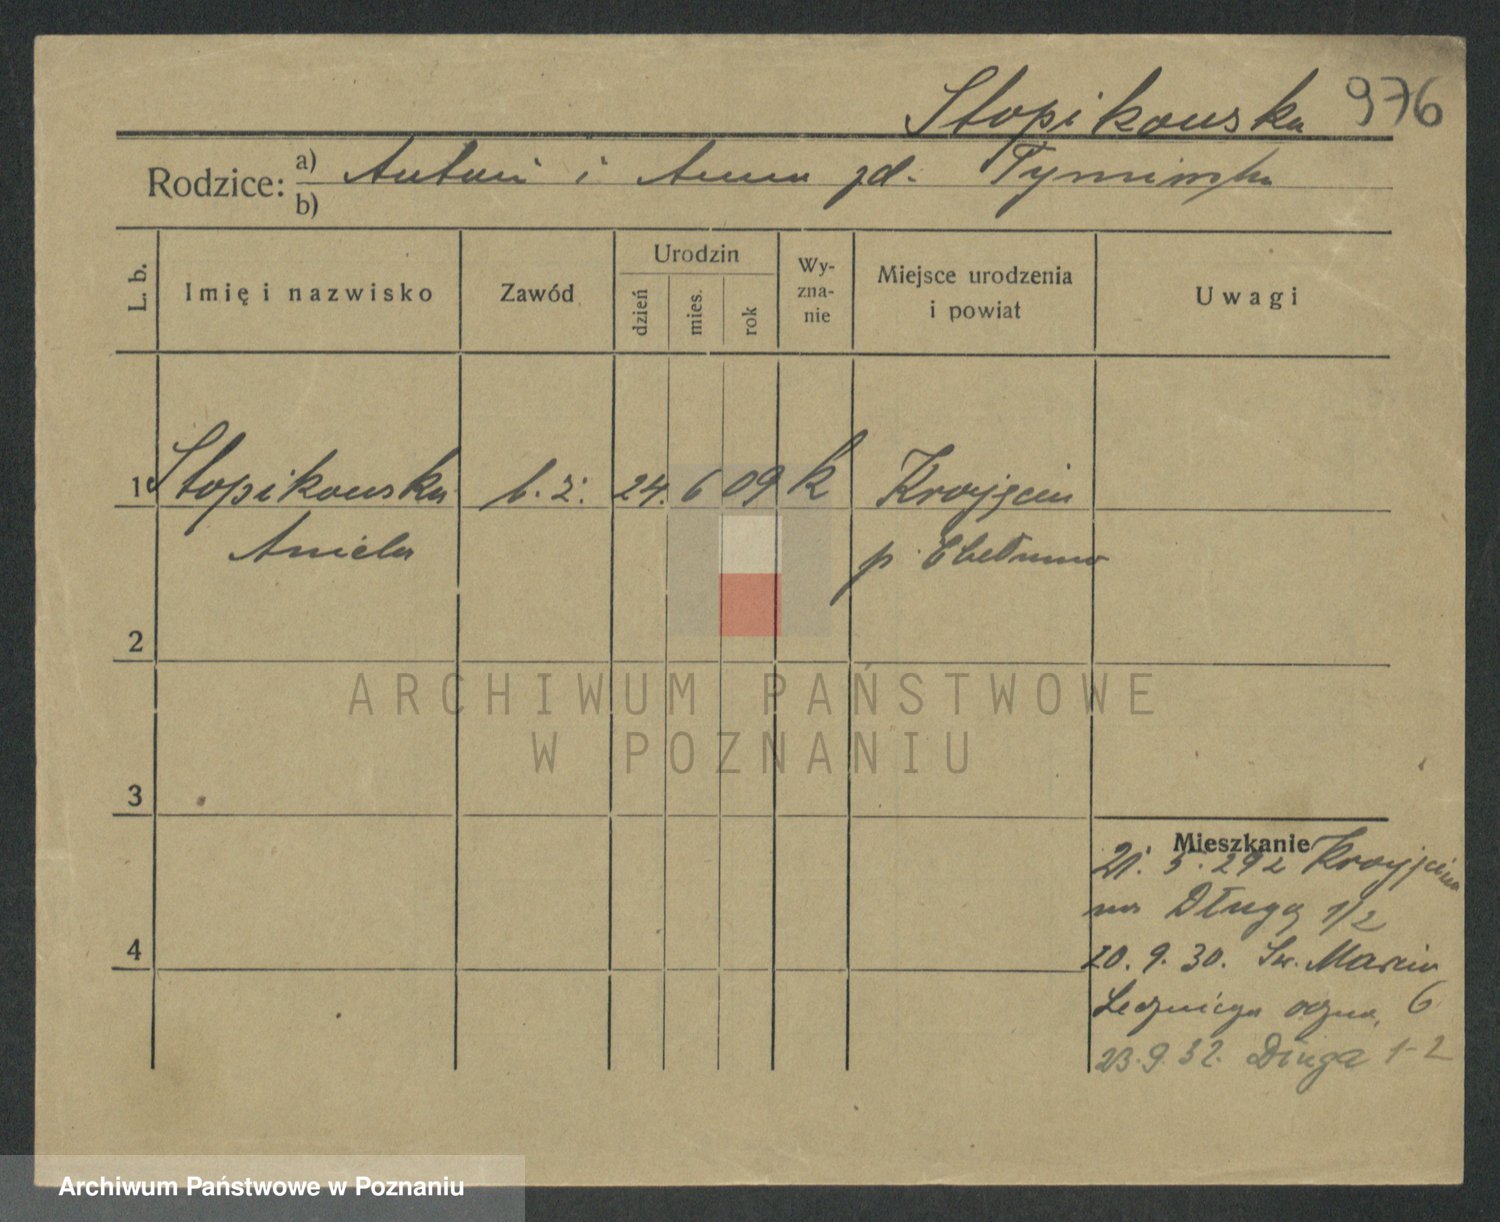 Stopikowska 976
Rodzice: a) Antoni i Anna zd. Tymińska
b)
L. b. Imię i nazwisko Zawód Urodzin dzień mies. rok Wy-zna-nie Miejsce urodzenia i powiat Uwagi
1 Stopikowska b. z. 24. 6 09 k
Aniela p. Chełmno
2
ARCHIWUM PAŃSTWOWE
W POZNANIU
3
Mieszkanie
21. 5. 29 z
na Długą 1/2
4
20. 9. 30. Św. Marcin
Lecznica oczna, 6
23. 9. 32. Długa 1-2
Archiwum Państwowe w Poznaniu